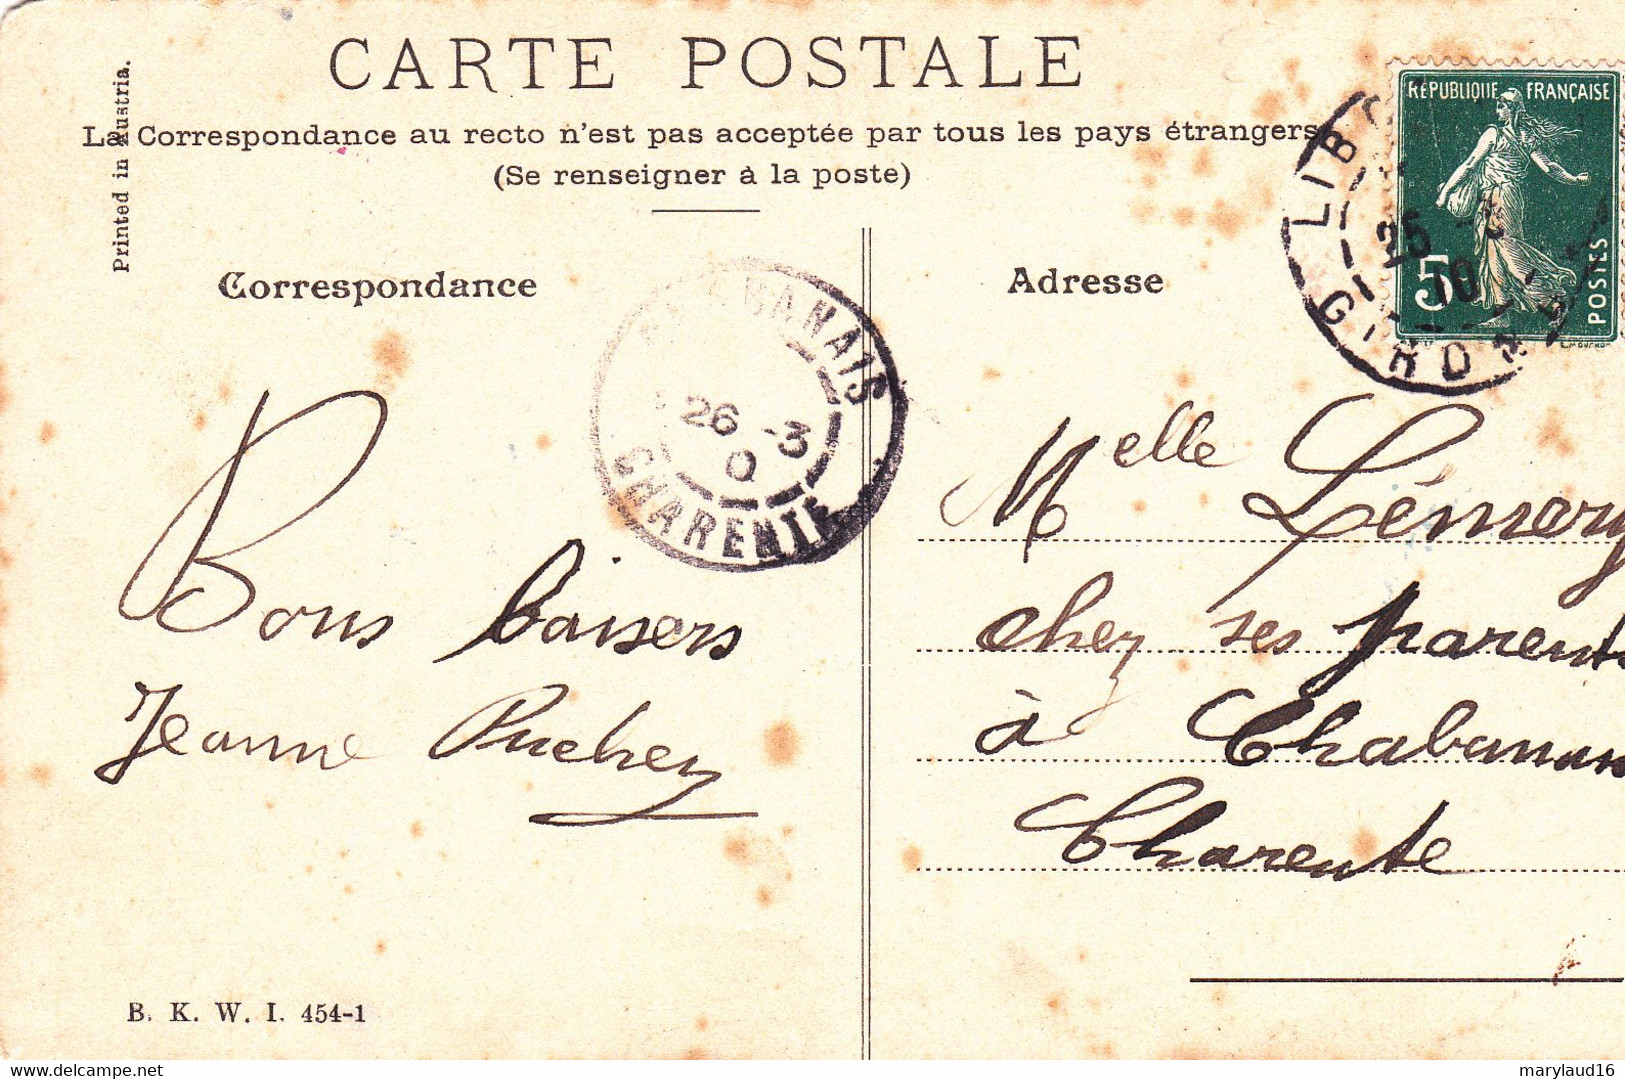 CARTE POSTALE
La Correspondance au recto n'est pas acceptée par tous les pays étrangers
(Se renseigner à la poste)
Printed in Austria.
Correspondance
Adresse
RÉPUBLIQUE FRANÇAISE
5
POSTES
LIBO
25
10
GIROND
CHABANAIS
26 -3
0
CHARENTE
Bons baisers
Jeanne Puchez
Melle Lémery
chez ses parents
à Chabanais
Charente
B. K. W. I. 454-1
delcampe.net
marylaud16